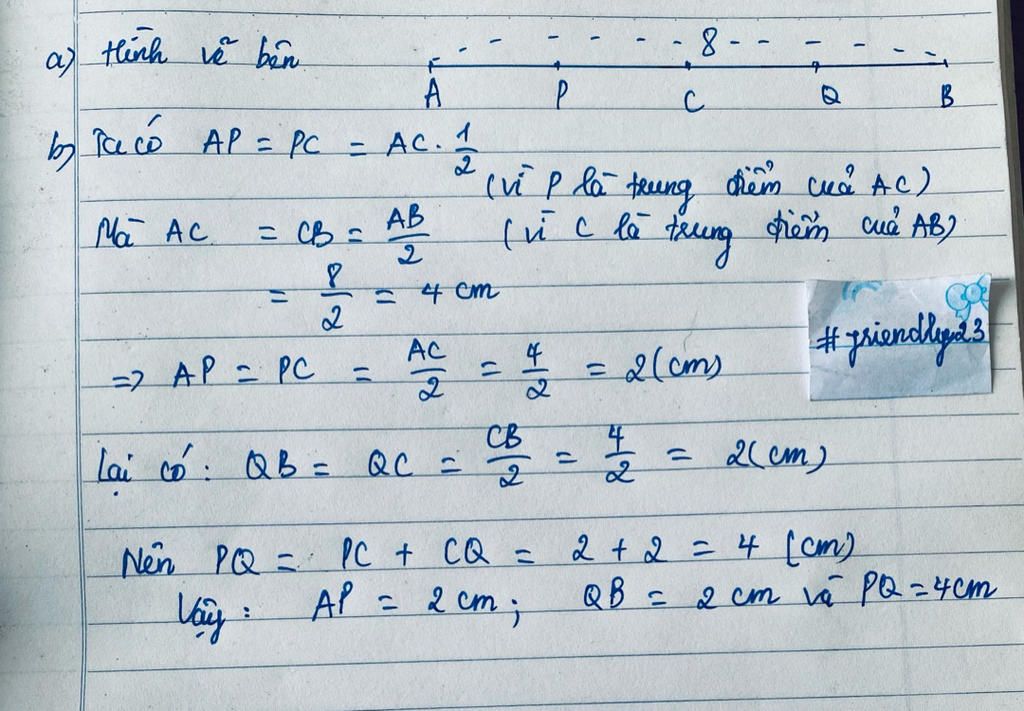 a) Hình vẽ bên
8
A P C Q B
b) Ta có AP = PC = AC . 1/2
(vì P là trung điểm của AC)
Mà AC = CB = AB/2 (vì C là trung điểm của AB)
= 8/2 = 4 cm
=> AP = PC = AC/2 = 4/2 = 2 (cm)
#friendly23
Lại có : QB = QC = CB/2 = 4/2 = 2 (cm)
Nên PQ = PC + CQ = 2 + 2 = 4 (cm)
Vậy : AP = 2 cm ; QB = 2 cm và PQ = 4 cm